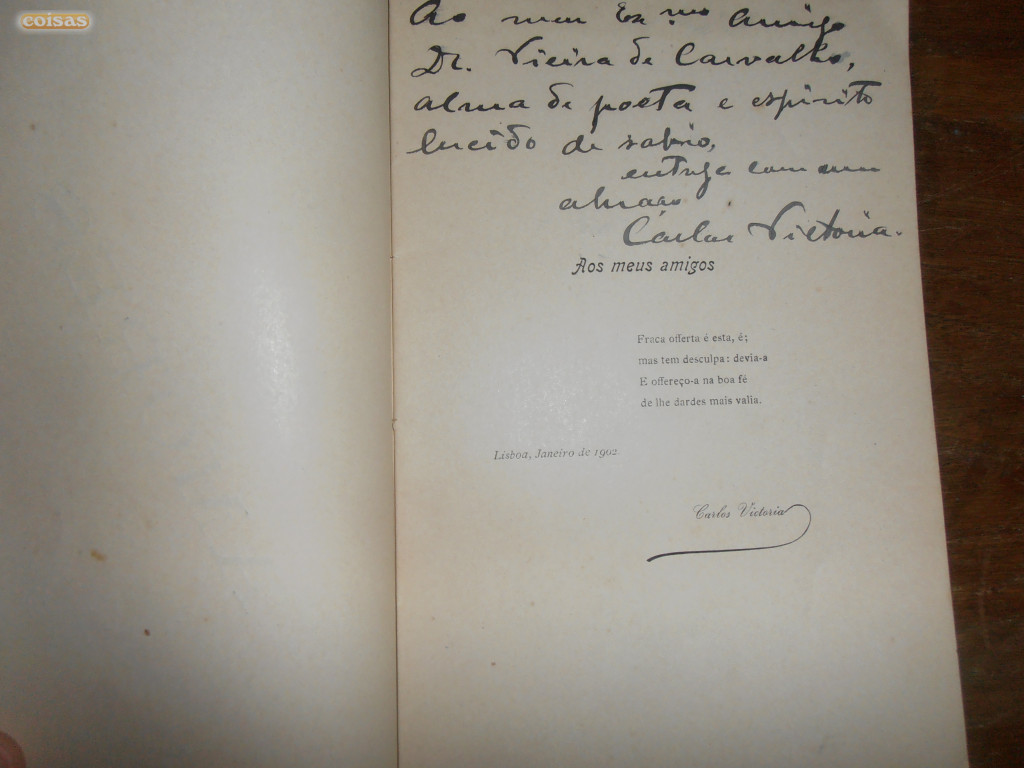 coisas
Ao meu Ex.mo Amigo
Dr. Vieira de Carvalho,
alma de poeta e espirito
lucido de sabio,
entrega com um
abraço
Carlos Victoria.
Aos meus amigos
Fraca offerta é esta, é;
mas tem desculpa: devia-a
E offereço-a na boa fé
de lhe dardes mais valia.
Lisboa, Janeiro de 1902.
Carlos Victoria